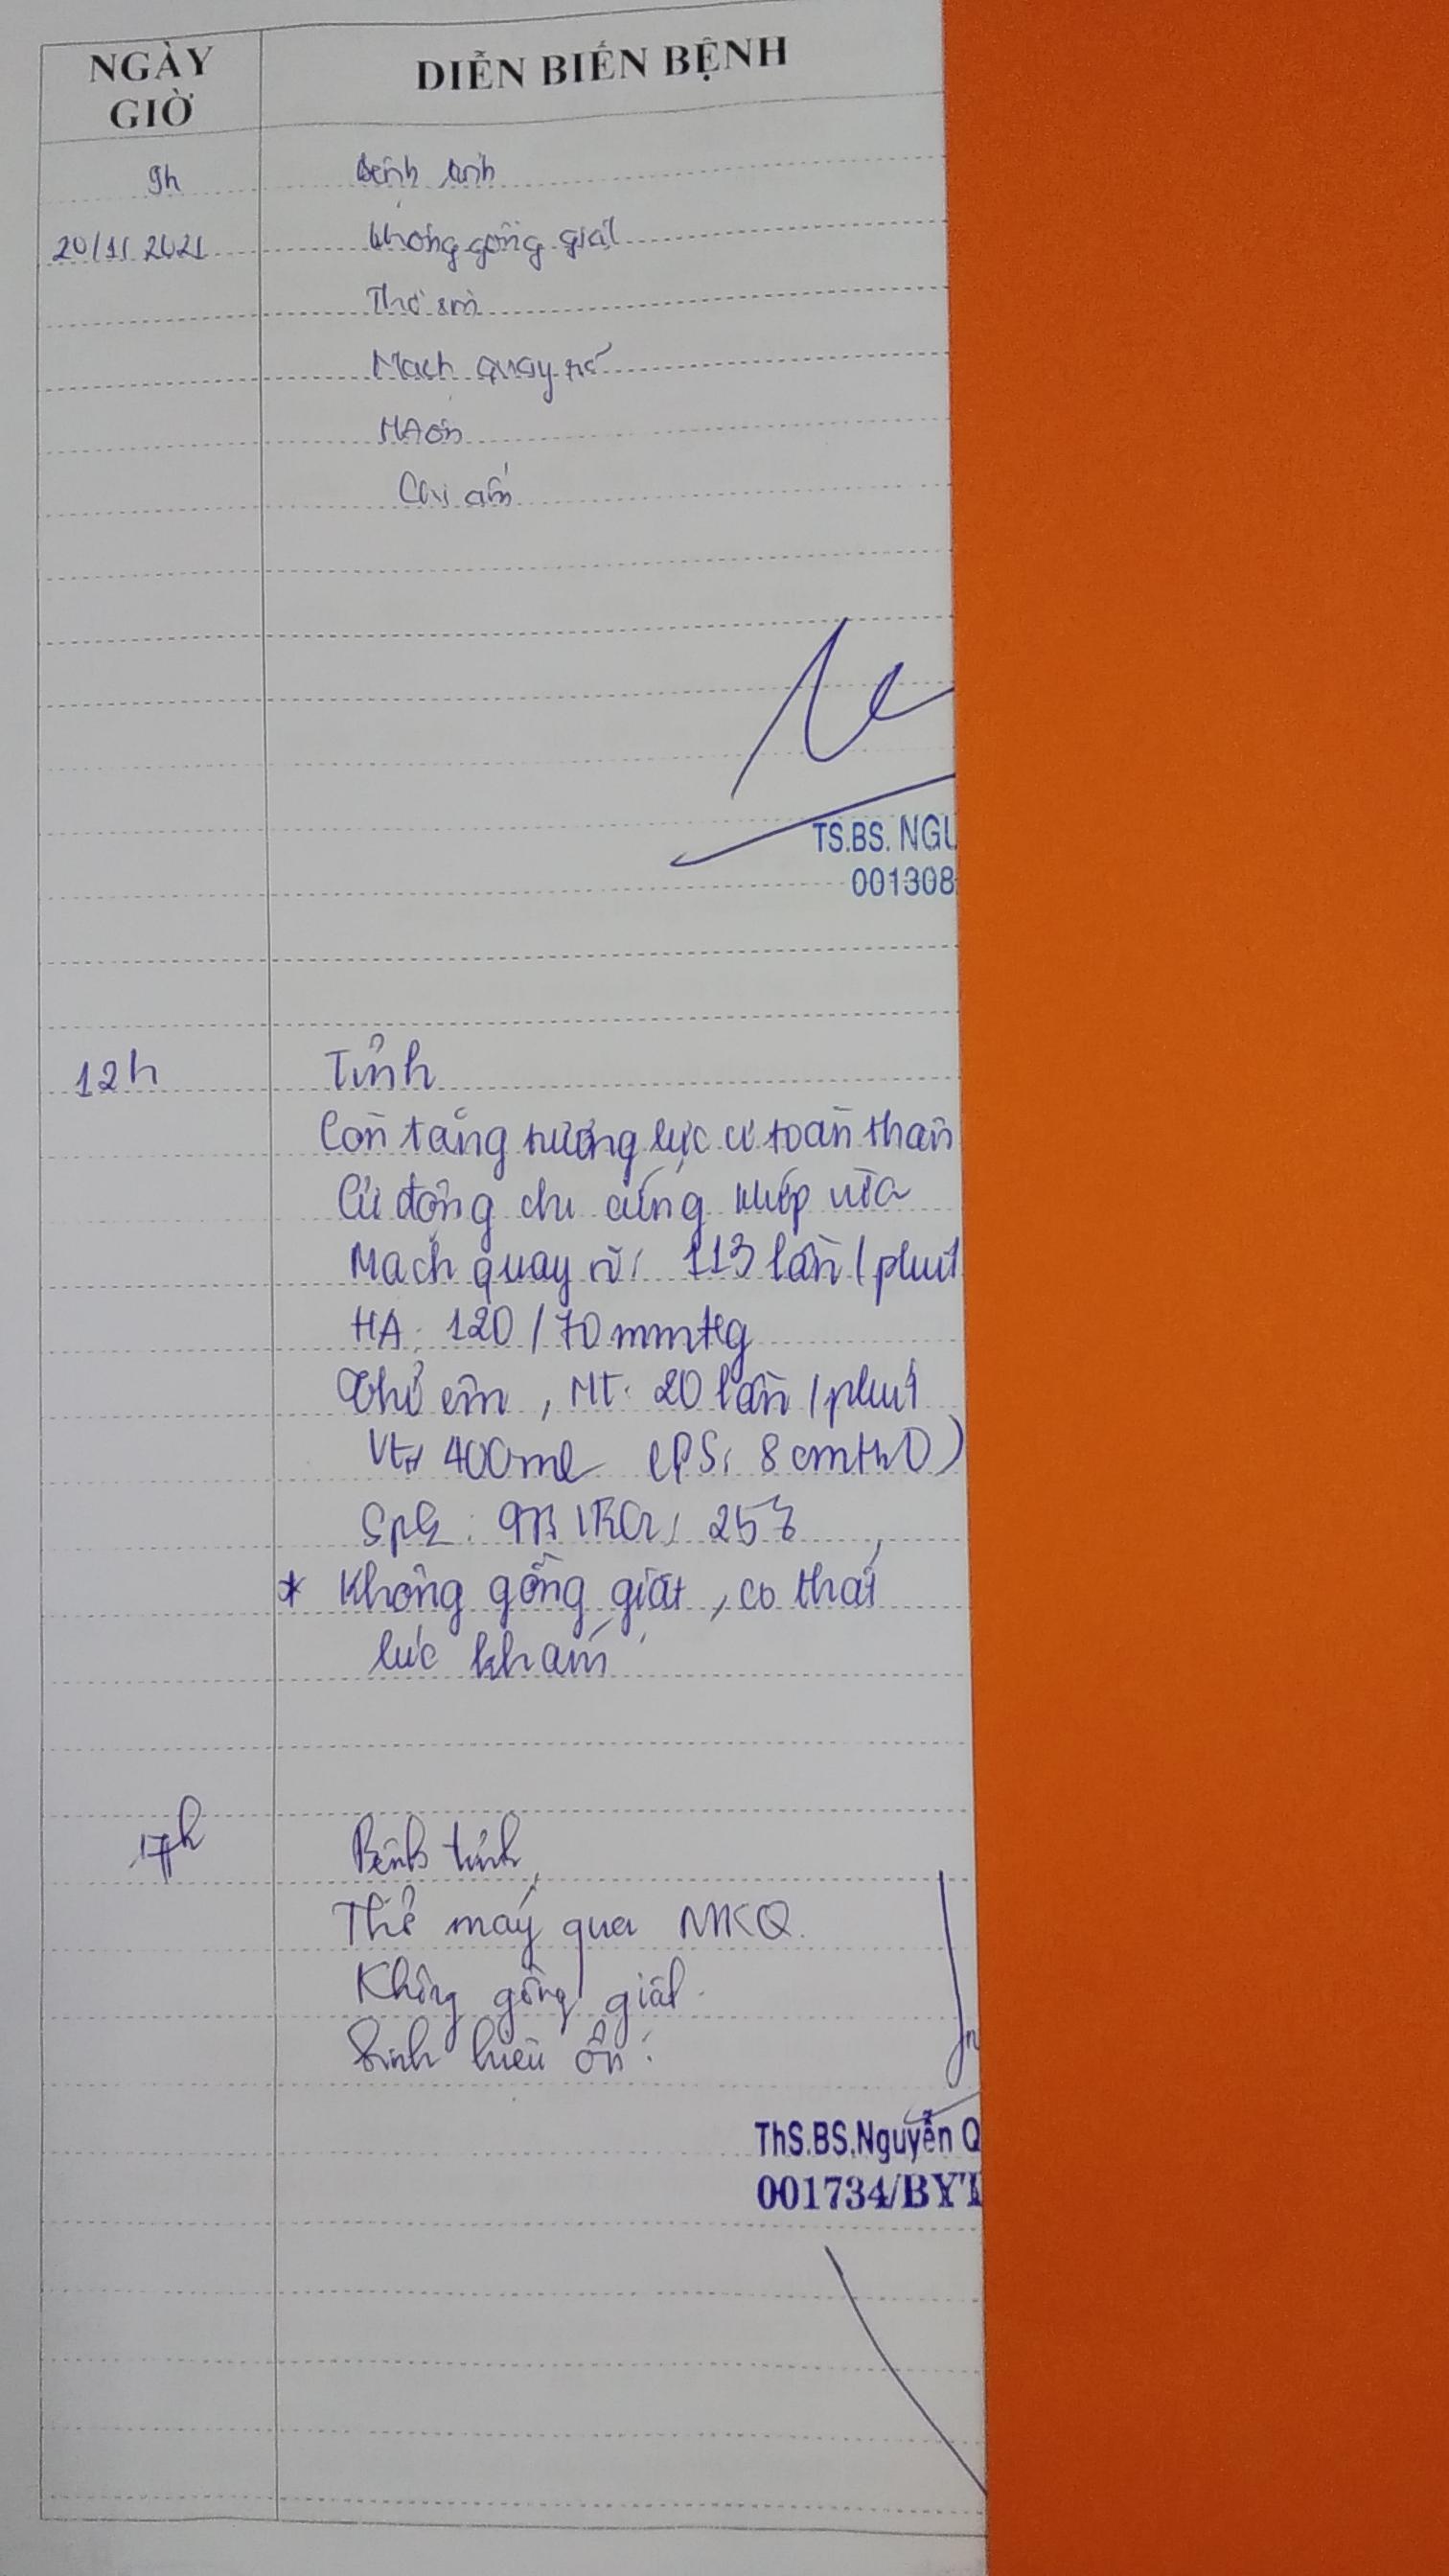 NGÀY
GIỜ
DIỄN BIẾN BỆNH
9h
Bệnh tỉnh
20/11/2021
Không gồng giật
Thở êm
Mạch quay rõ
HA ổn
Chi ấm
TS.BS. NGU
001308
12h
Tỉnh
Còn tăng trương lực cơ toàn thân
Cử động chi cứng khớp vừa
Mạch quay rõ: 113 lần/phút
HA: 120/70 mmHg
Thở êm, NT: 20 lần/phút
Vt: 400ml (PS: 8 cmH2O)
SpO2:
* Không gồng giật, co thắt
lúc khám
17h
Bệnh tỉnh
Thở máy qua MKQ.
Không gồng giật.
Sinh hiệu ổn.
ThS.BS.Nguyễn Q
001734/BYT